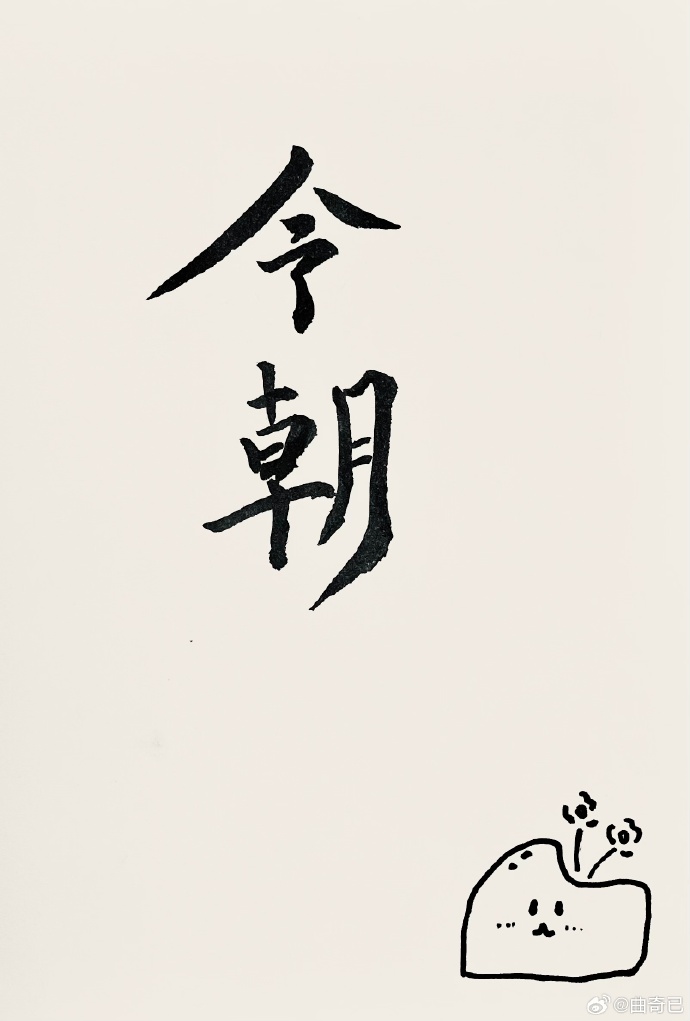 今朝
@曲奇已